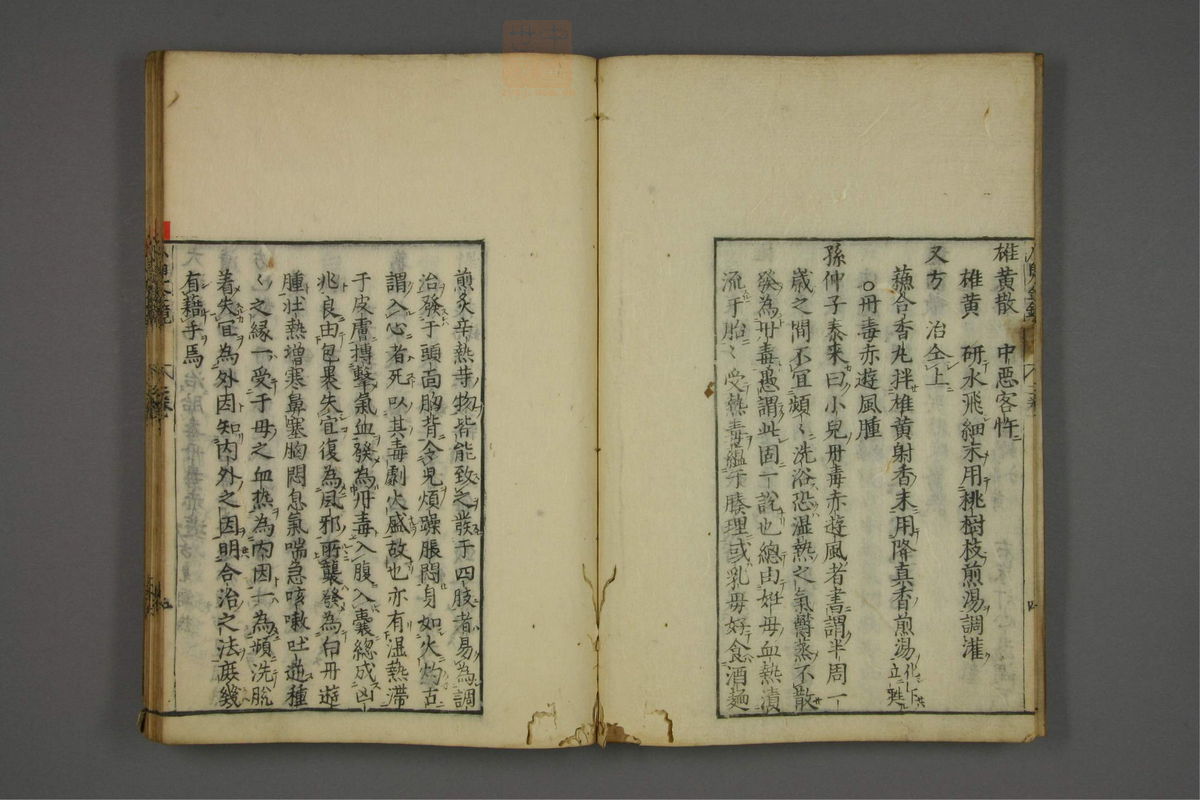 雄黄散 中惡客忤
雄黄 研水飛細末用桃樹枝煎湯調灌
又方 治仝上
蘓合香丸拌雄黄射香末用降真香煎湯化下立甦
○丹毒赤遊風腫
孫仲子泰来曰小兒丹毒赤遊風者書謂半周一
歳之間不宜頻〻洗浴恐湿熱之氣欝蒸不散
發為丹毒愚謂此固一說也總由姙母血熱漬
流于胎〻受熱毒藴于腠理或乳母好食酒麵
煎炙辛熱等物皆能致之發于四肢者易為調
治發于頭面胸背令児煩躁脹悶身如火灼古
謂入心者死以其毒劇火盛故也亦有湿熱滞
于皮膚搏擊氣血發為丹毒入腹入囊總成凶
兆良由包裹失宜復為風邪所襲發為白丹遊
腫壮熱增寒鼻塞胸悶息氣喘急咳嗽吐逆種
〻之縁一受于母之血热為内因一為頻洗脱
着失宜為外因知内外之因明合治之法庶幾
有藉手焉